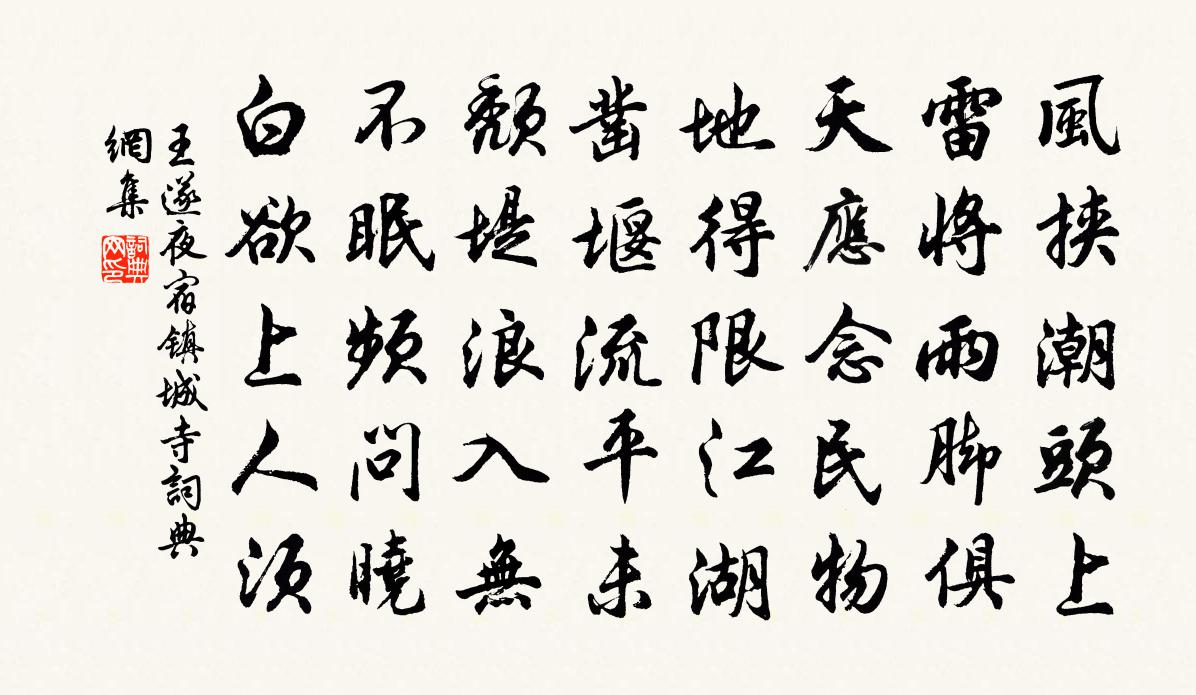 風挾潮頭上
雷將雨腳俱
天應念民物
地得限江湖
凿堰流平未
頹堤浪入無
不眠頻問曉
白欲上人須
王遂夜宿鎮城寺詞典
網集
詞典网印